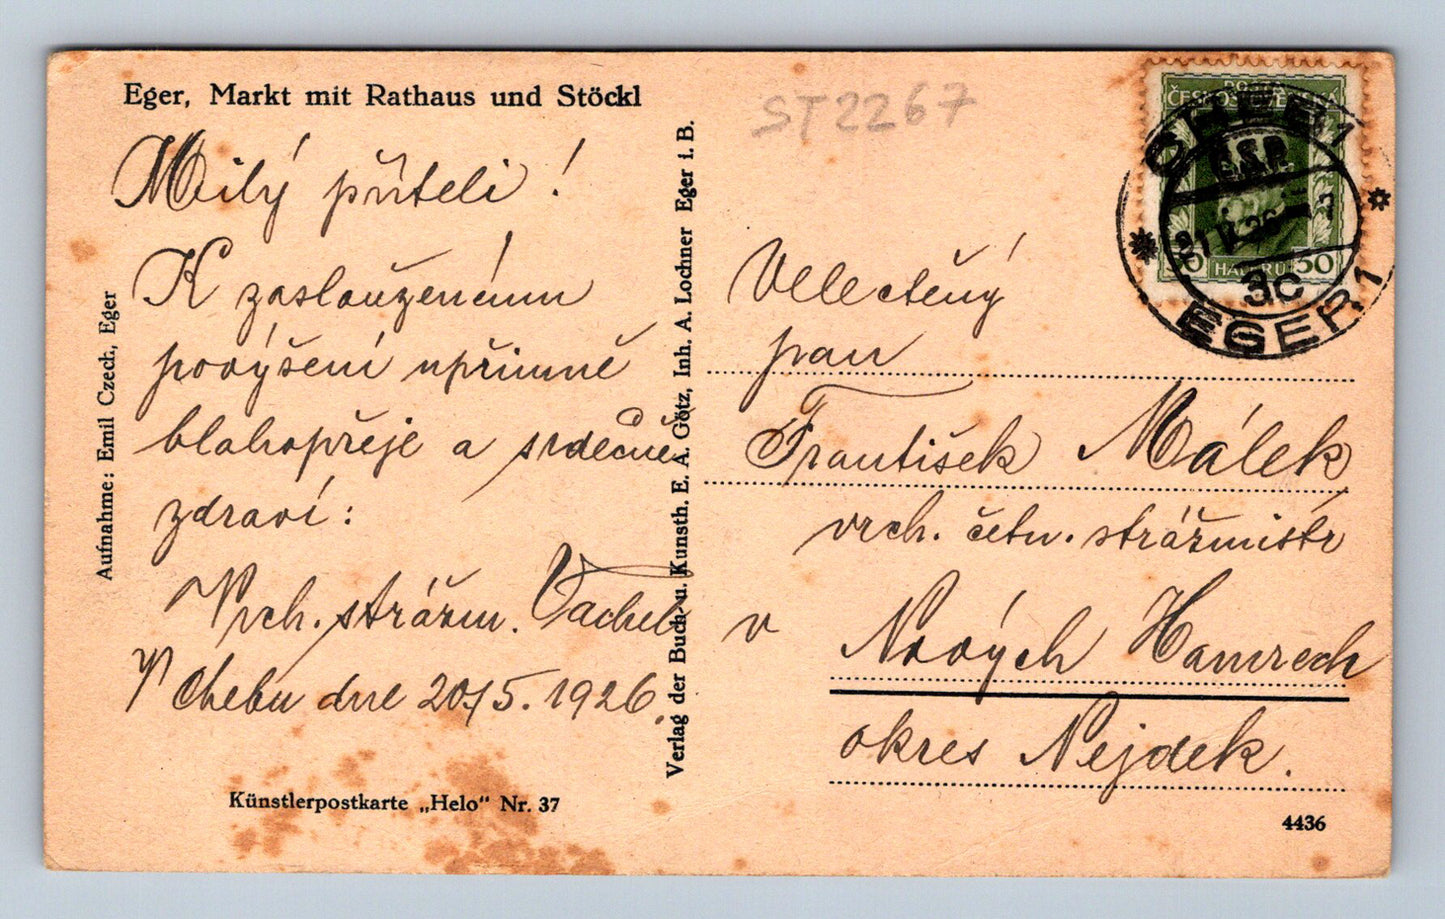 Eger, Markt mit Rathaus und Stöckl
ST2267
Milý příteli!
K zaslouženému
povýšení upřímně
blahopřeje a srdečně
zdraví:
Vrch. strážm. Vachel
V Chebu dne 20/5. 1926.
Künstlerpostkarte „Helo" Nr. 37
Aufnahme: Emil Czech, Eger
Verlag der Buch- u. Kunsth. E. A. Götz, Inh. A. Lochner Eger i. B.
ČESKOSLOVENSKÁ
50 HALÉŘŮ 50
CHEB 1
Č.S.P.
3c
EGER 1
Velectěný
pan
František Málek
vrch. četn. strážmistr
v Nových Hamrech
okres Nejdek.
4436